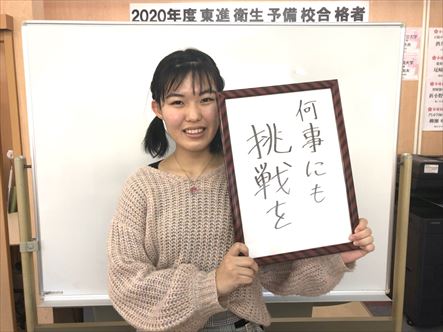 2020年度東進衛生予備校合格者
何事にも
挑戦を